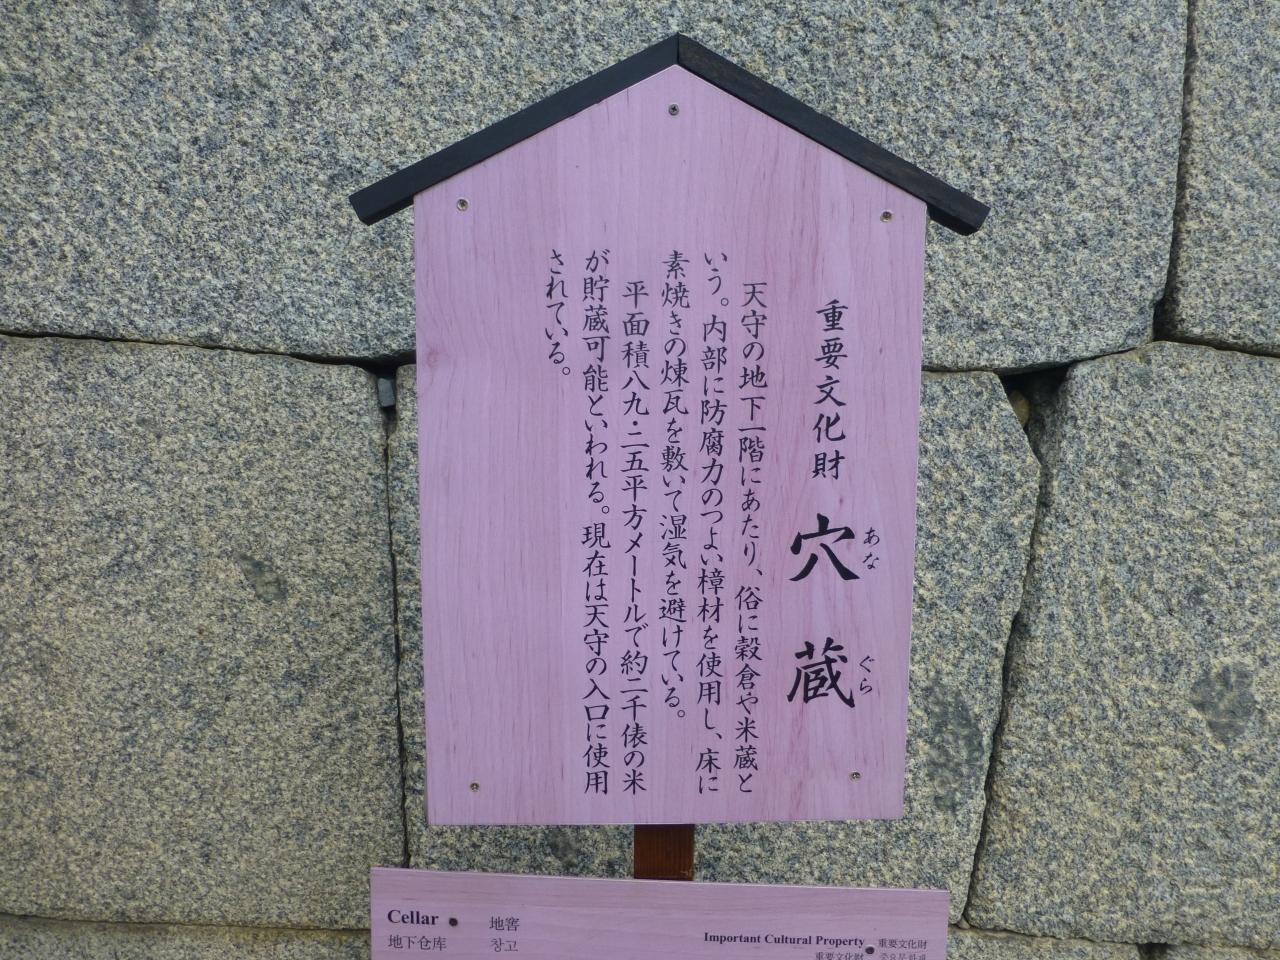 重要文化財 穴蔵
あな ぐら
天守の地下一階にあたり、俗に穀倉や米蔵と
いう。内部に防腐力のつよい樟材を使用し、床に
素焼きの煉瓦を敷いて湿気を避けている。
平面積八九・二五平方メートルで約二千俵の米
が貯蔵可能といわれる。現在は天守の入口に使用
されている。
Cellar 地窖
地下仓库 창고
Important Cultural Property 重要文化財
重要文化財 중요문화재